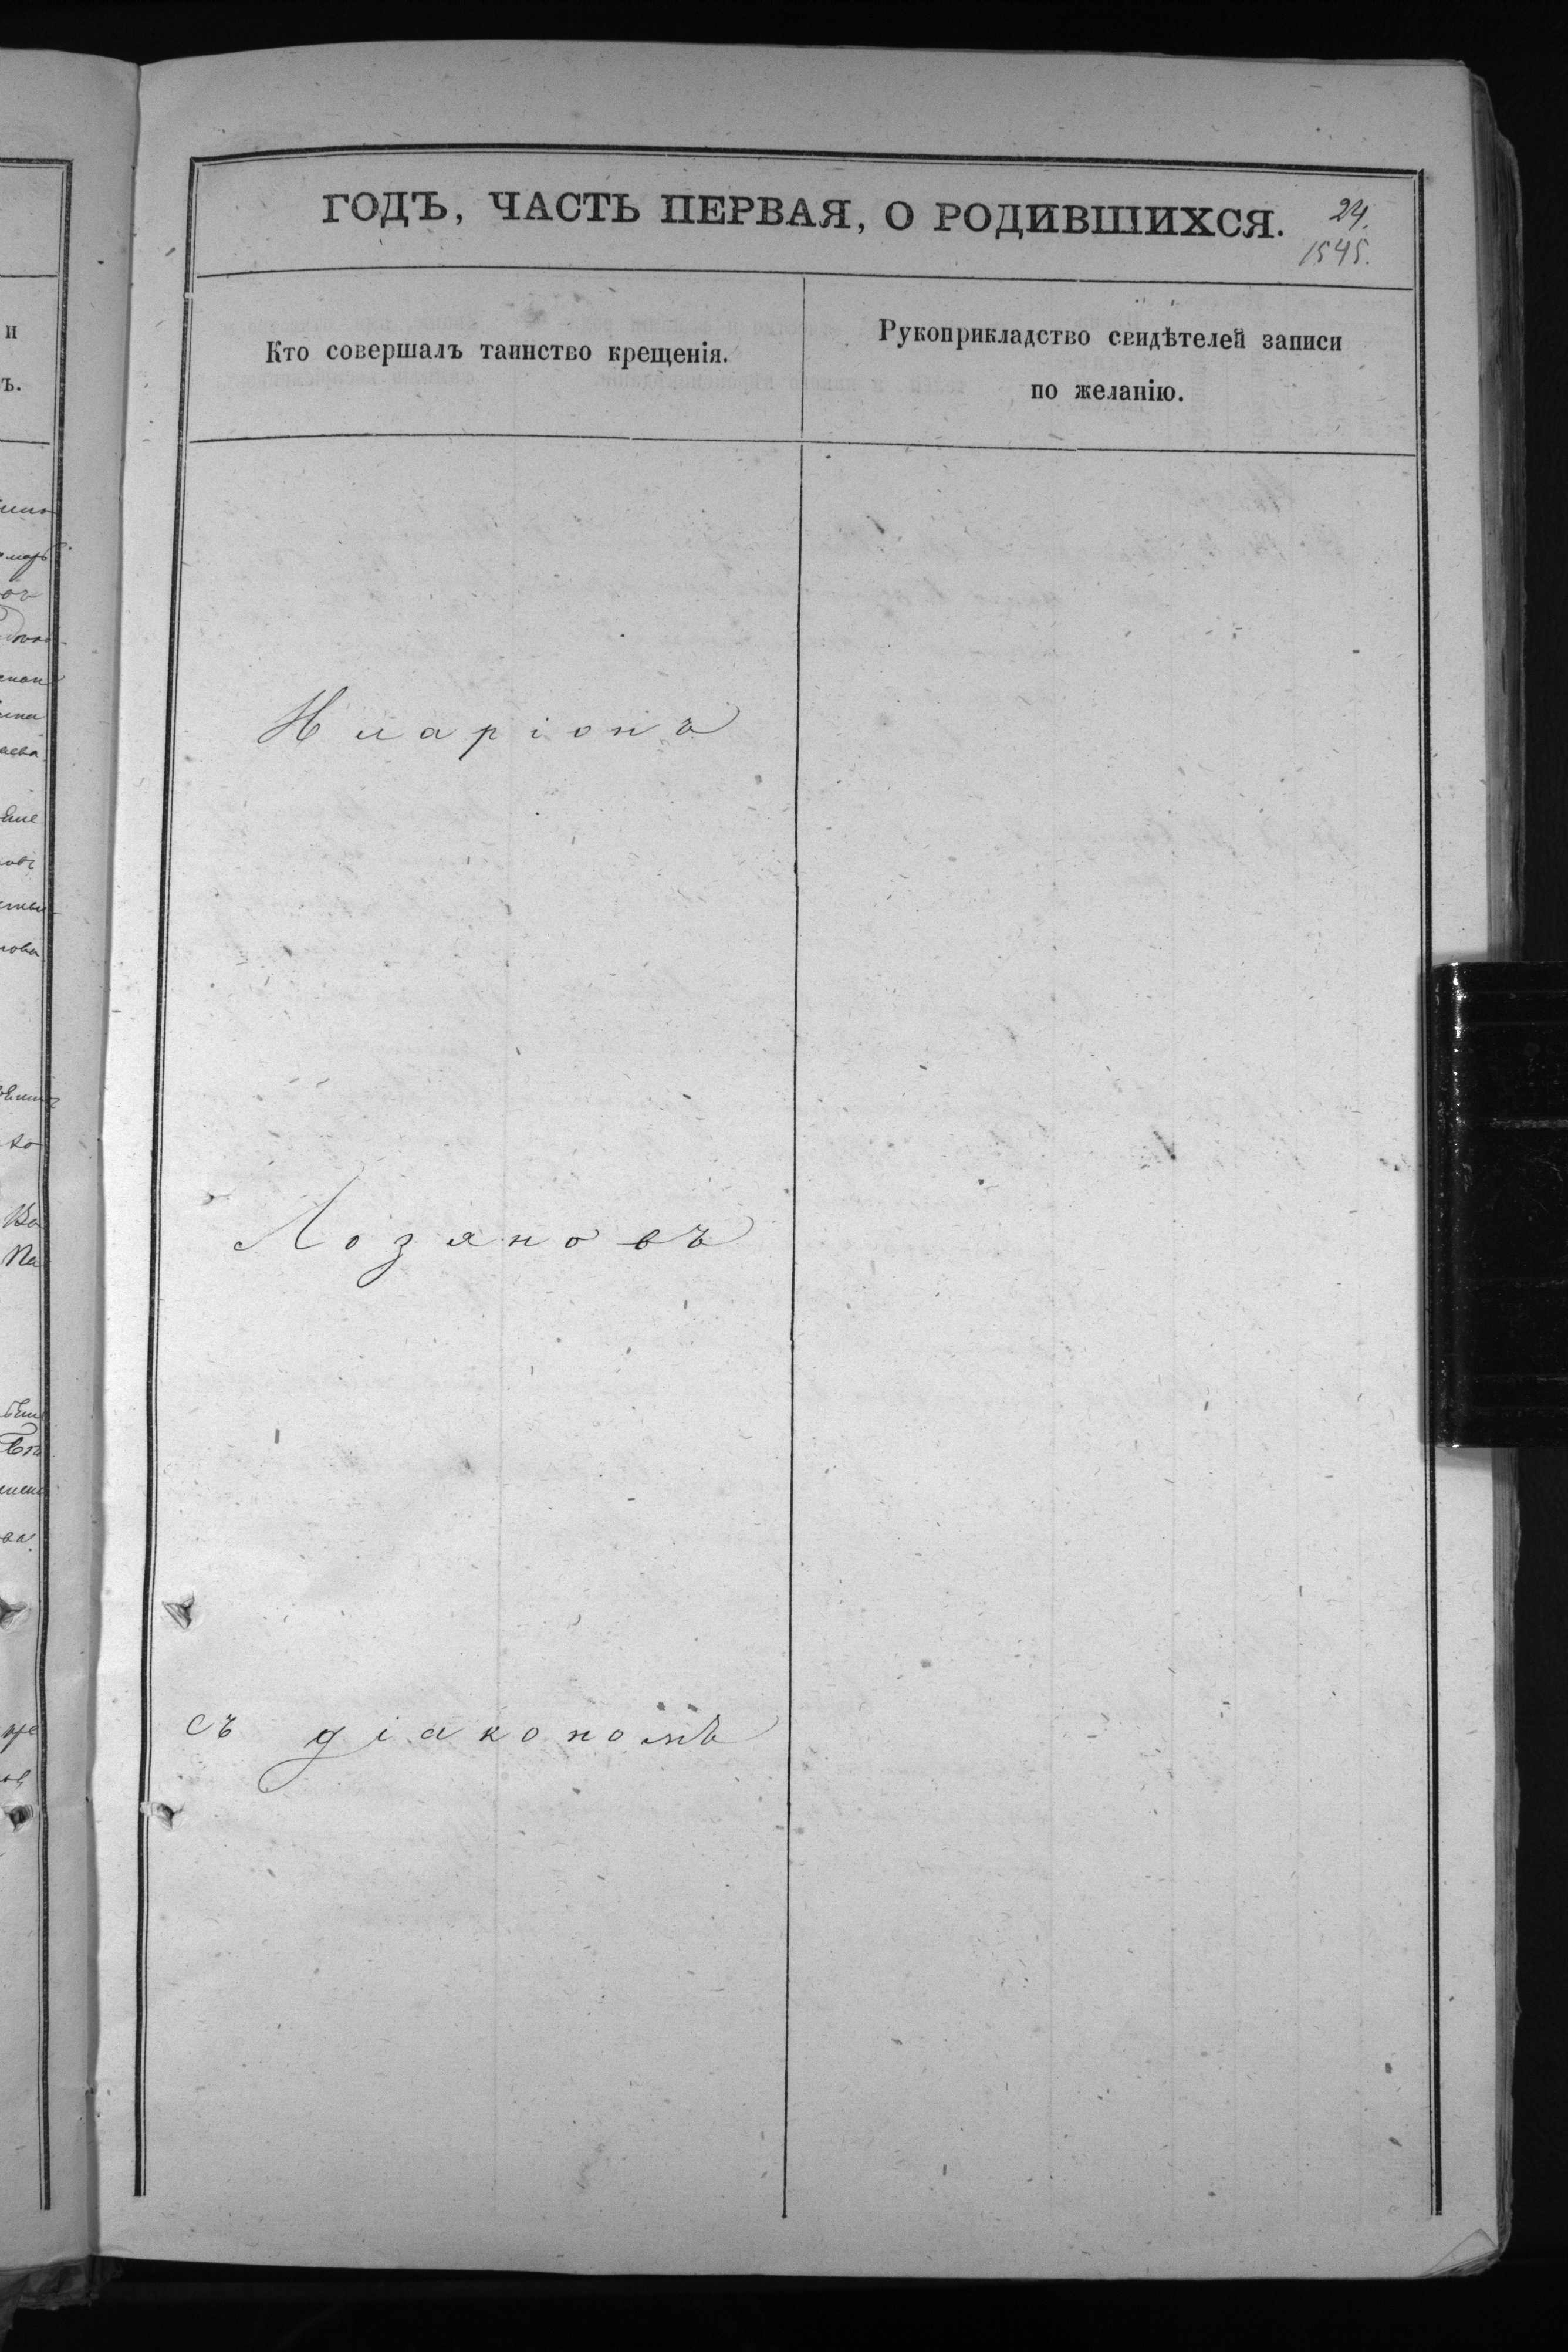 ГОДЪ, ЧАСТЬ ПЕРВАЯ, О РОДИВШИХСЯ.
24.
1545.
Кто совершалъ таинство крещенія.
Рукоприкладство свидѣтелей записи
по желанію.
Иларіонъ
Лозяновъ
съ діакономъ
и
ъ.